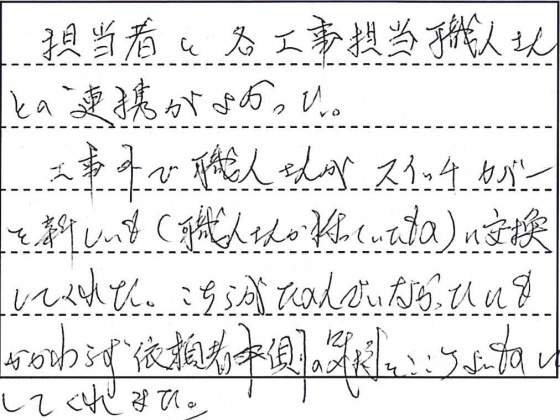 担当者と各工事担当職人さん
とのご連携がよかった。
工事外で職人さんがスイッチカバー
を新しいもの(職人さんが持っていたもの)に交換
してくれた。こちらがたのんでいなかったにも
かかわらず依頼者側の気持をここちよいものに
してくれました。